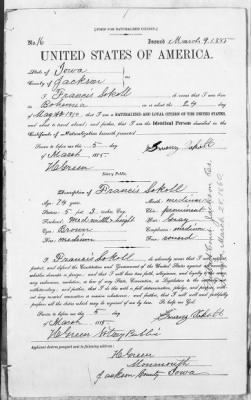 [FORM FOR NATURALIZED CITIZEN.]
No. 16 Issued March 9, 1885
UNITED STATES OF AMERICA.
State of Iowa
County of Jackson
I Francis Sokoll do swear that I was born in
Bohemia on or about the 24 day
of May that I am a NATURALIZED AND LOYAL CITIZEN OF THE UNITED STATES,
and about to travel abroad; and further, that I am the Identical Person described in the
Certificate of Naturalization herewith presented
Sworn to before me this 5 day
of March 1885.
H Green
Notary Public.
Description of Francis Sokoll
Age: 74 years Mouth: medium
Stature: 5 feet 3 inches Eng. Chin: prominent
Forehead: Hair: Gray
Eyes: Brown Complexion: medium
Nose: medium Face: round
I, Francis Sokoll, do solemnly swear that I will support,
protect, and defend the Constitution and Government of the United States against all enemies,
whether domestic or foreign; and that I will bear true faith, allegiance, and loyalty to the same,
any ordinance, resolution, or law of any State, Convention, or Legislature to the contrary
notwithstanding; and further, that I do this with a full determination, pledge, and purpose, without
any mental reservation or evasion whatsoever; and further, that I will well and faithfully
perform all the duties which may be required of me by law. So help me God
Sworn to before me this 5 day
of March 1885
H Green Notary Public
Applicant desires passport sent to following address:
H Green
Monmouth
Jackson County Iowa